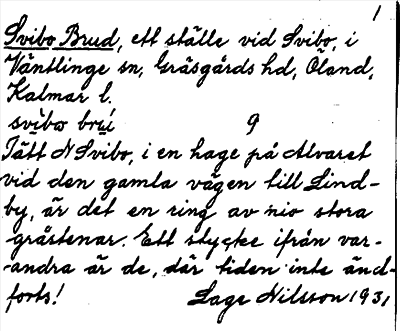 1
Svibo Brud, ett ställe vid Svibo, i
Väntlinge sn, Gräsgårds hd, Öland,
Kalmar l.
9
Tätt N Svibo, i en hage på Alvaret
vid den gamla vägen till Lind-
by, är det en ring av nio stora
gråstenar. Ett stycke ifrån var-
andra är de, där tiden inte änd-
forts!
Lage Nilsson 1931